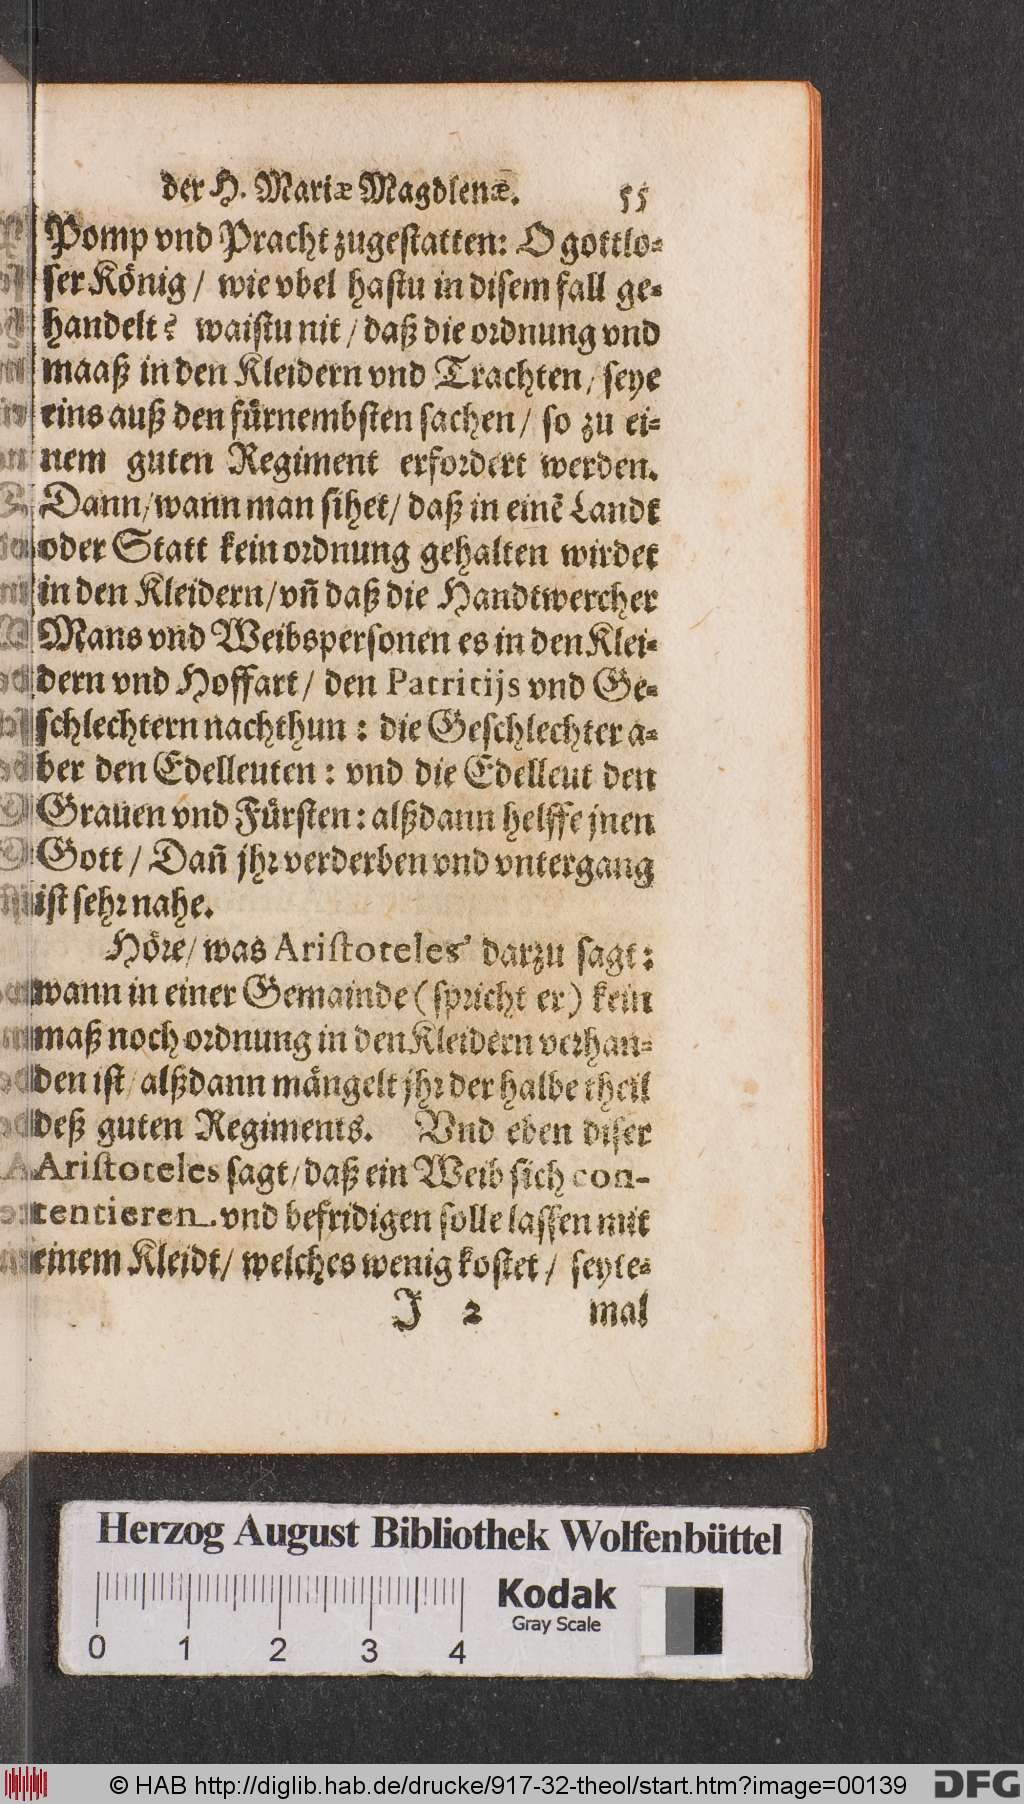 der H. Mariæ Magdlenæ. 55
Pomp vnd Pracht zugestatten: O gottlo-
ser König / wie vbel hastu in disem fall ge-
handelt? waistu nit / daß die ordnung vnd
maaß in den Kleidern vnd Trachten / seye
eins auß den fürnembsten sachen / so zu ei-
nem guten Regiment erfordert werden.
Dann / wann man sihet / daß in einẽ Landt
oder Statt kein ordnung gehalten wirdet
in den Kleidern / vñ daß die Handtwercher
Mans vnd Weibspersonen es in den Klei-
dern vnd Hoffart / den Patritijs vnd Ge-
schlechtern nachthun : die Geschlechter a-
ber den Edelleuten : vnd die Edelleut den
Grauen vnd Fürsten : alßdann helffe jnen
Gott / Dañ jhr verderben vnd vntergang
ist sehr nahe.
Höre / was Aristoteles darzu sagt:
wann in einer Gemainde (spricht er) kein
maß noch ordnung in den Kleidern verhan-
den ist / alßdann mängelt jhr der halbe theil
deß guten Regiments. Vnd eben diser
Aristoteles sagt / daß ein Weib sich con-
tentieren vnd befridigen solle lassen mit
einem Kleidt / welches wenig kostet / seyte-
J 2 mal
Herzog August Bibliothek Wolfenbüttel
Kodak
Gray Scale
0 1 2 3 4
© HAB http://diglib.hab.de/drucke/917-32-theol/start.htm?image=00139
DFG